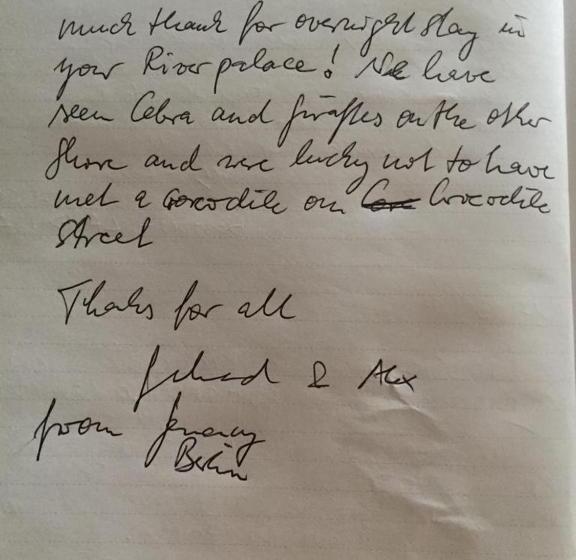 much thank for overnight stay in
your River palace! We have
seen Cebra and giraffes on the other
Shore and were lucky not to have
met a crocodile on Crocodile
Street
Thanks for all
& Alex
from Germany
Berlin